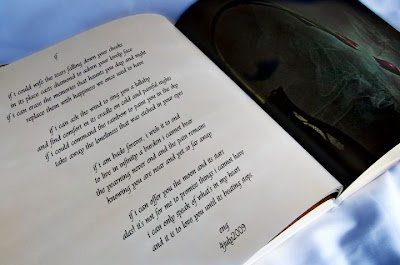 if
if i could wipe the tears falling down your cheeks
in its place cast diamond to adorn your lovely face
if i can erase the memories that haunt you day and night
replace them with happiness we once used to have
if i can ask the wind to sing you a lullaby
and find comfort in its cradle on cold and painful nights
if i could command the rainbow to paint you in the sky
take away the loneliness that was etched in your eyes
if i am made forever, i wish it to end
to live in infinity a burden i cannot bear
the yearning never end and the pain remains
knowing you are near and yet so far away
if i can offer you the moon and its stars
alas! it's not for me to promise things i cannot have
i can only speak of what's in my heart
and it is to love you until its beating stops
eng
4july2009